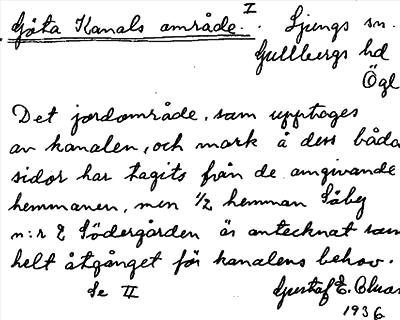 Göta Kanals område. I. Ljungs sn.
Gullbergs hd
Ögl
Det jordområde, som upptages
av kanalen, och mark å dess båda
sidor har tagits från de angivande
hemmanen, men 1/2 hemman Såby
n:r 2 Södergården är antecknat som
helt åtgånget för kanalens behov.
Se II
Gustaf E.
1936